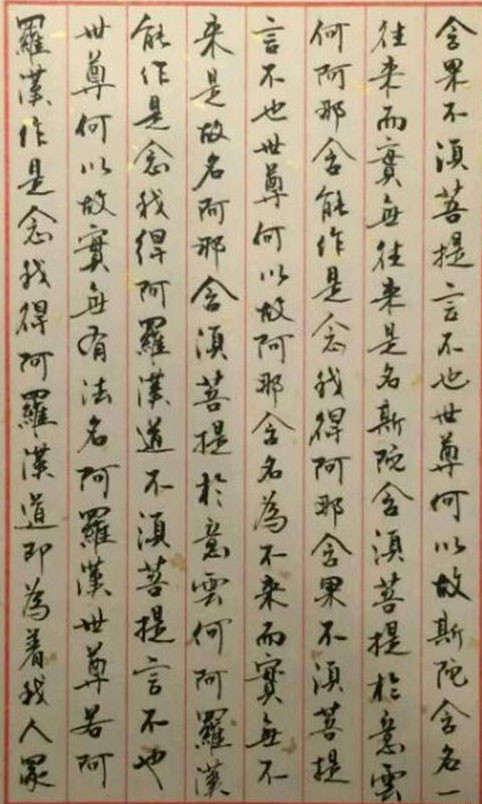 含果不須菩提言不也世尊何以故斯陀含名一
往来而實無往来是名斯陀含須菩提於意雲
何阿那含能作是念我得阿那含果不須菩提
言不也世尊何以故阿那含名為不来而實無不
来是故名阿那含須菩提於意雲何阿羅漢
能作是念我得阿羅漢道不須菩提言不也
世尊何以故實無有法名阿羅漢世尊若阿
羅漢作是念我得阿羅漢道即為着我人眾